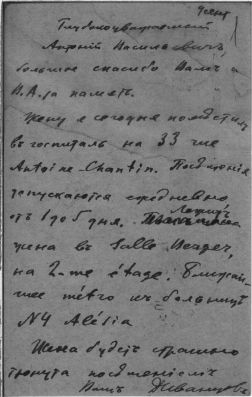 9 сент
Глубокоуважаемый
Антоній Васильевичъ,
большое спасибо Вамъ и
Н.А. за память.
Жену я сегодня помѣстилъ
въ госпиталь на 33 rue
Antoine Chantin. Посѣщенія
допускаются ежедневно
отъ 1 до 5 дня. Лежитъ
жена въ Salle
на 2-me étage. Ближай-
шее métro къ больницѣ
N4 Alésia
Жена будетъ страшно
тронута посѣщеніемъ
Вашъ